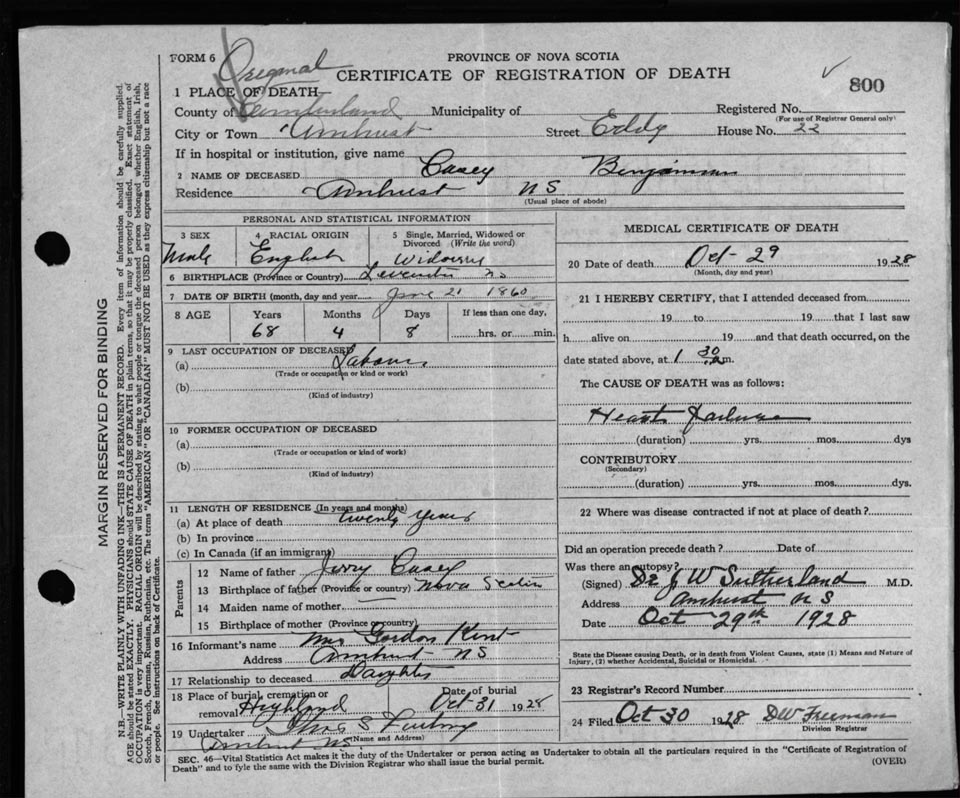 FORM 6
Original
PROVINCE OF NOVA SCOTIA
CERTIFICATE OF REGISTRATION OF DEATH
800
1 PLACE OF DEATH
County of Cumberland Municipality of Registered No.
(For use of Registrar General only)
City or Town Amherst Street Eddy House No. 22
If in hospital or institution, give name
2 NAME OF DECEASED Casey Benjamin
Residence Amherst NS
(Usual place of abode)
PERSONAL AND STATISTICAL INFORMATION
3 SEX 4 RACIAL ORIGIN 5 Single, Married, Widowed or Divorced (Write the word)
Male English
6 BIRTHPLACE (Province or Country) NS
7 DATE OF BIRTH (month, day and year) June 21 1860
8 AGE Years Months Days If less than one day,
68 4 8 hrs. or min.
9 LAST OCCUPATION OF DECEASED
(a) Labourer
(Trade or occupation or kind or work)
(b)
(Kind of industry)
10 FORMER OCCUPATION OF DECEASED
(a)
(Trade or occupation or kind of work)
(b)
(Kind of industry)
11 LENGTH OF RESIDENCE (In years and months)
(a) At place of death twenty years
(b) In province
(c) In Canada (if an immigrant)
Parents
12 Name of father Jerry Casey
13 Birthplace of father (Province or country) Nova Scotia
14 Maiden name of mother
15 Birthplace of mother (Province or country)
16 Informant's name Mrs Gordon Kent
Address Amherst NS
17 Relationship to deceased Daughter
18 Place of burial, cremation or removal Highland Date of burial Oct 31 1928
19 Undertaker
(Name and Address)
Amherst NS
MEDICAL CERTIFICATE OF DEATH
20 Date of death Oct - 29 1928
(Month, day and year)
21 I HEREBY CERTIFY, that I attended deceased from
19 to 19 that I last saw
h alive on 19 and that death occurred, on the
date stated above, at 1 30 m.
The CAUSE OF DEATH was as follows:
Heart Failure
(duration) yrs. mos. dys
CONTRIBUTORY
(Secondary)
(duration) yrs. mos. dys.
22 Where was disease contracted if not at place of death?
Did an operation precede death? Date of
Was there an autopsy?
(Signed) Dr J W Sutherland M.D.
Address Amherst NS
Date Oct 29th 1928
State the Disease causing Death, or in death from Violent Causes, state (1) Means and Nature of
Injury, (2) whether Accidental, Suicidal or Homicidal.
23 Registrar's Record Number
24 Filed Oct 30 1928 DW Freeman
Division Registrar
SEC. 46—Vital Statistics Act makes it the duty of the Undertaker or person acting as Undertaker to obtain all the particulars required in the "Certificate of Registration of
Death" and to fyle the same with the Division Registrar who shall issue the burial permit.
(OVER)
MARGIN RESERVED FOR BINDING
N.B.—WRITE PLAINLY WITH UNFADING INK—THIS IS A PERMANENT RECORD. Every item of information should be carefully supplied.
AGE should be stated EXACTLY. PHYSICIANS should STATE CAUSE OF DEATH in plain terms, so that it may be properly classified. Exact statement of
OCCUPATION is very important. RACIAL ORIGIN will be described by stating to what people or tongue the deceased person belonged whether English, Irish,
Scotch, French, German, Russian, Ruthenian, etc. The terms "AMERICAN" OR "CANADIAN" MUST NOT BE USED as they express citizenship but not a race
or people. See instructions on back of Certificate.